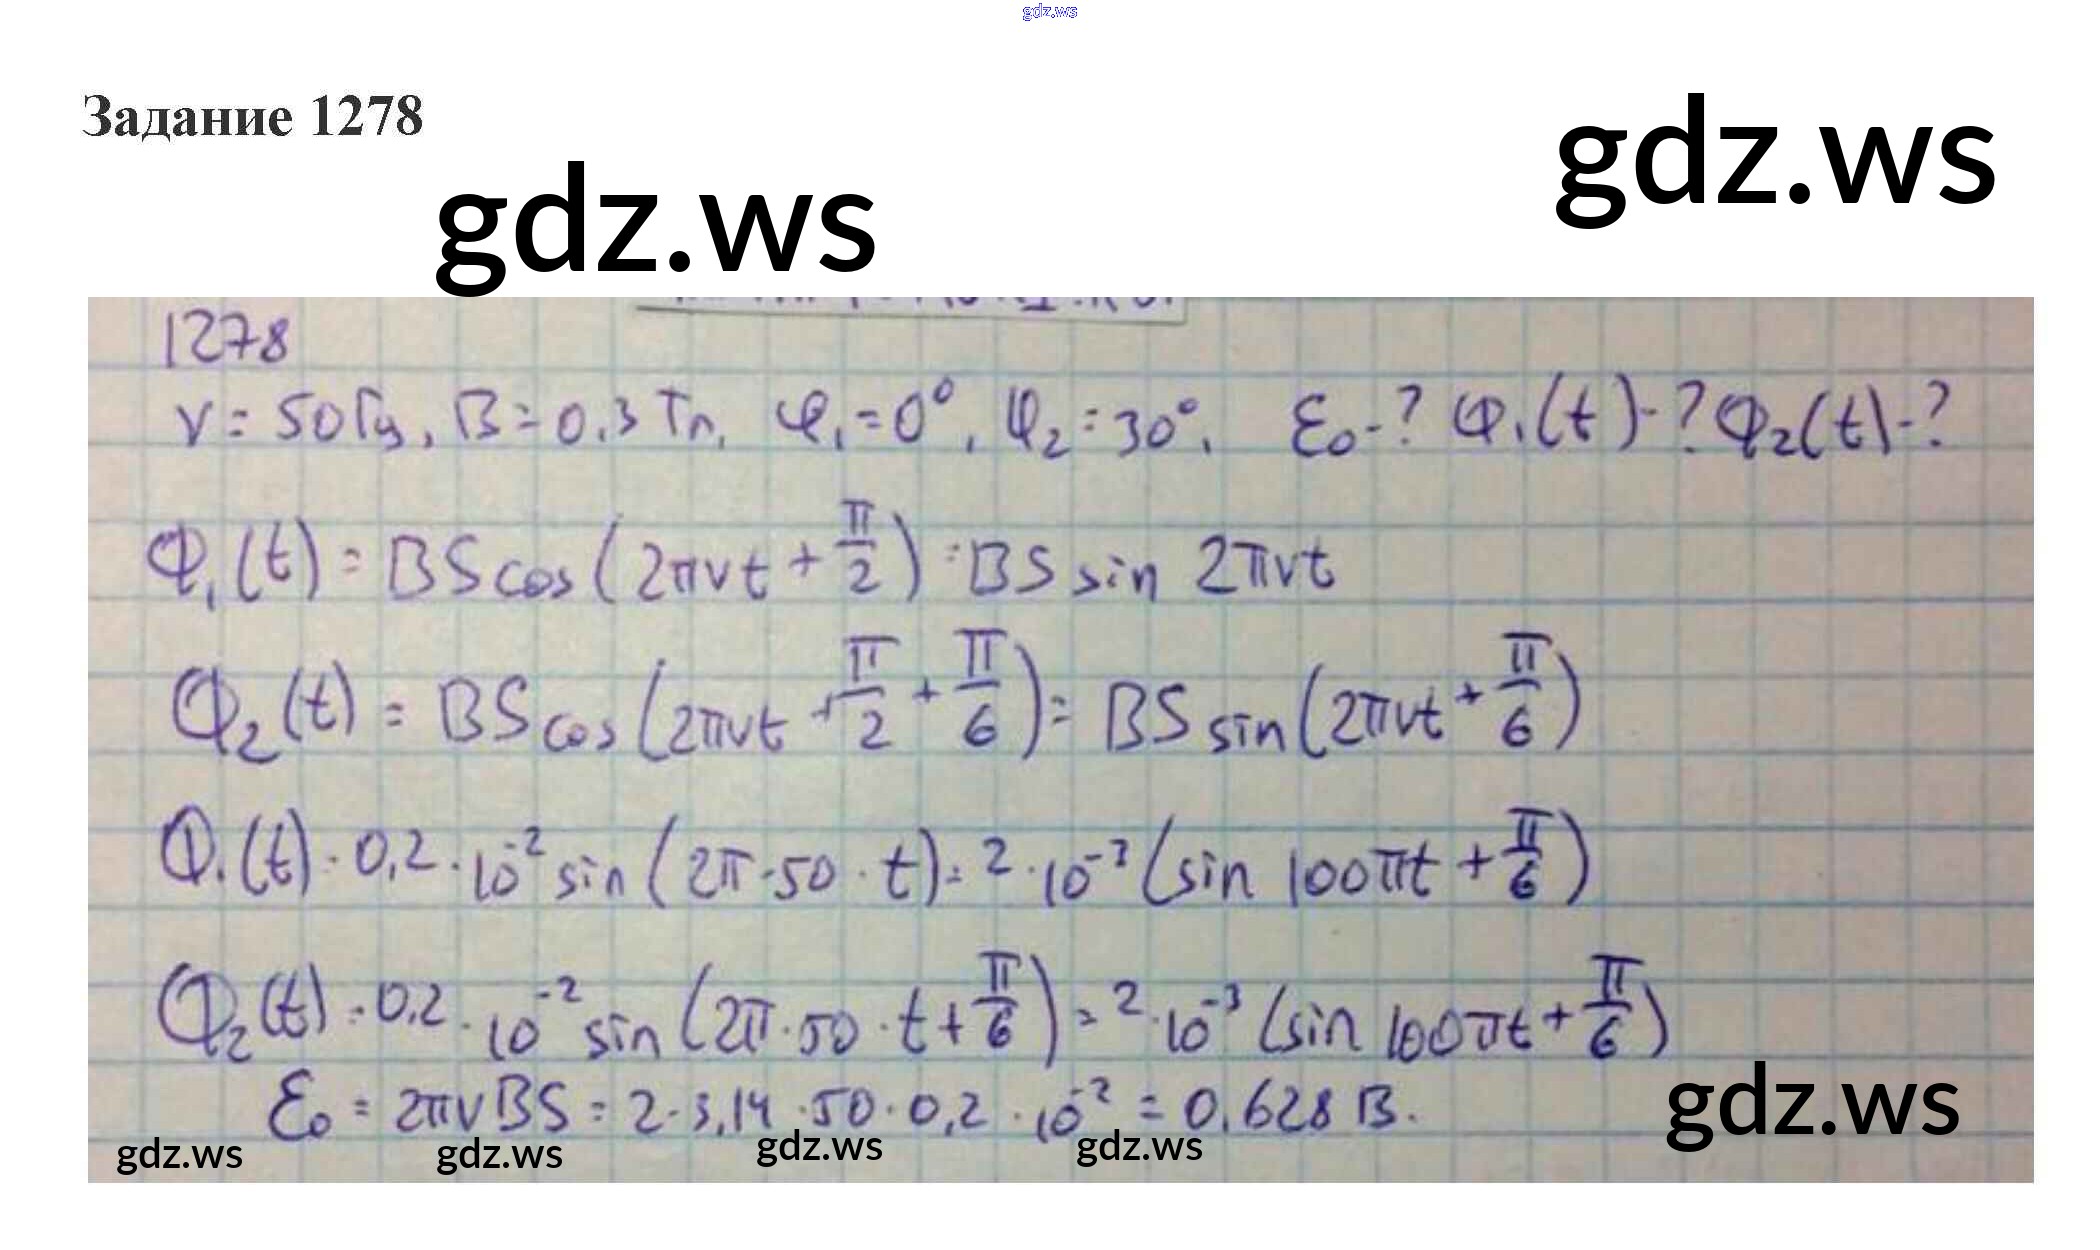 gdz.ws
Задание 1278
gdz.ws
gdz.ws
1278
ν = 50 Гц, B = 0.3 Тл, φ₁ = 0°, φ₂ = 30°. ℰ₀ - ? Φ₁(t) - ? Φ₂(t) - ?
Φ₁(t) = BS cos(2πνt + π/2) = BS sin 2πνt
Φ₂(t) = BS cos(2πνt + π/2 + π/6) = BS sin(2πνt + π/6)
Φ₁(t) = 0,2 · 10⁻² sin(2π·50·t) = 2·10⁻³(sin 100πt + π/6)
Φ₂(t) = 0,2 · 10⁻² sin(2π·50·t + π/6) = 2·10⁻³(sin 100πt + π/6)
ℰ₀ = 2πνBS = 2·3,14·50·0,2·10⁻² = 0,628 В.
gdz.ws
gdz.ws
gdz.ws
gdz.ws
gdz.ws